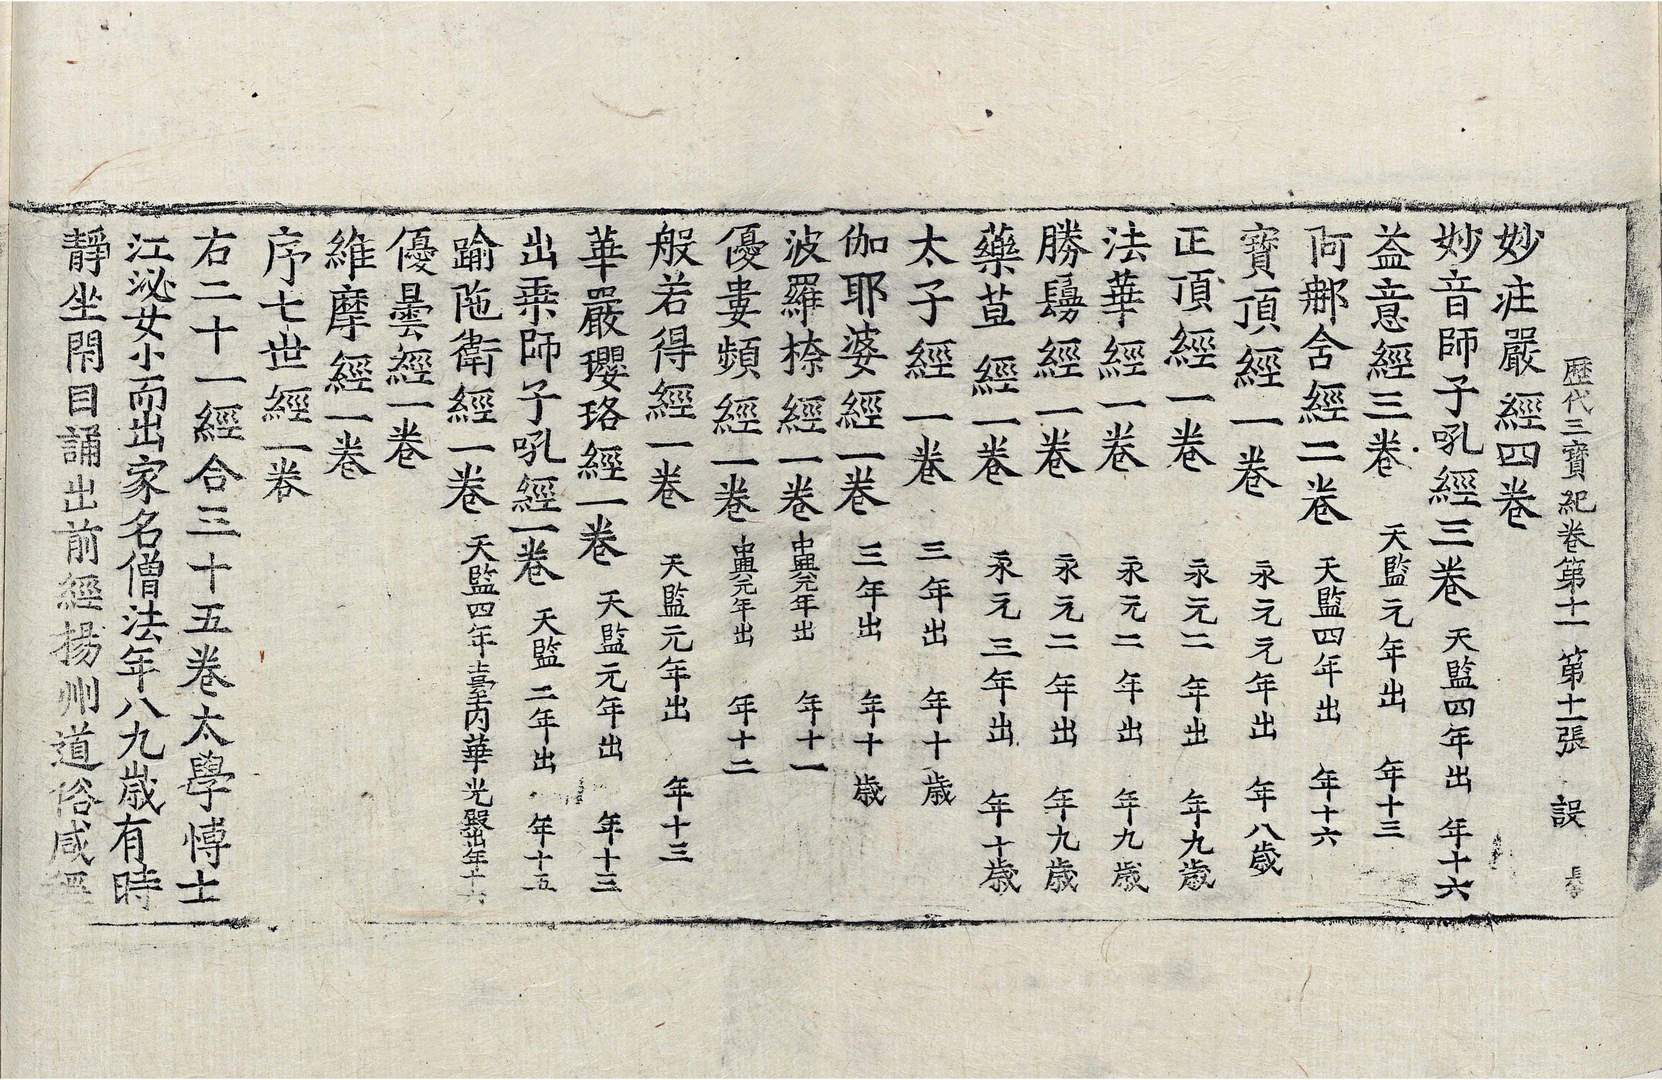 歷代三寶紀卷第十一 第十一張 設
妙莊嚴經四卷
妙音師子吼經三卷 天監四年出 年十六
益意經三卷 天監元年出 年十三
阿那含經二卷 天監四年出 年十六
寶頂經一卷 永元元年出 年八歲
正頂經一卷 永元二年出 年九歲
法華經一卷 永元二年出 年九歲
勝鬘經一卷 永元二年出 年九歲
藥草經一卷 永元三年出 年十歲
太子經一卷 三年出 年十歲
伽耶婆經一卷 三年出 年十歲
波羅㮈經一卷 中興元年出 年十一
優婁頻經一卷 中興元年出 年十二
般若得經一卷 天監元年出 年十三
華嚴瓔珞經一卷 天監元年出 年十三
出乘師子吼經一卷 天監二年出 年十五
踰陁衛經一卷 天監四年臺內華光殿出年十六
優曇經一卷
維摩經一卷
序七世經一卷
右二十一經合三十五卷太學博士
江泌女小而出家名僧法年八九歲有時
靜坐閇目誦出前經揚州道俗咸